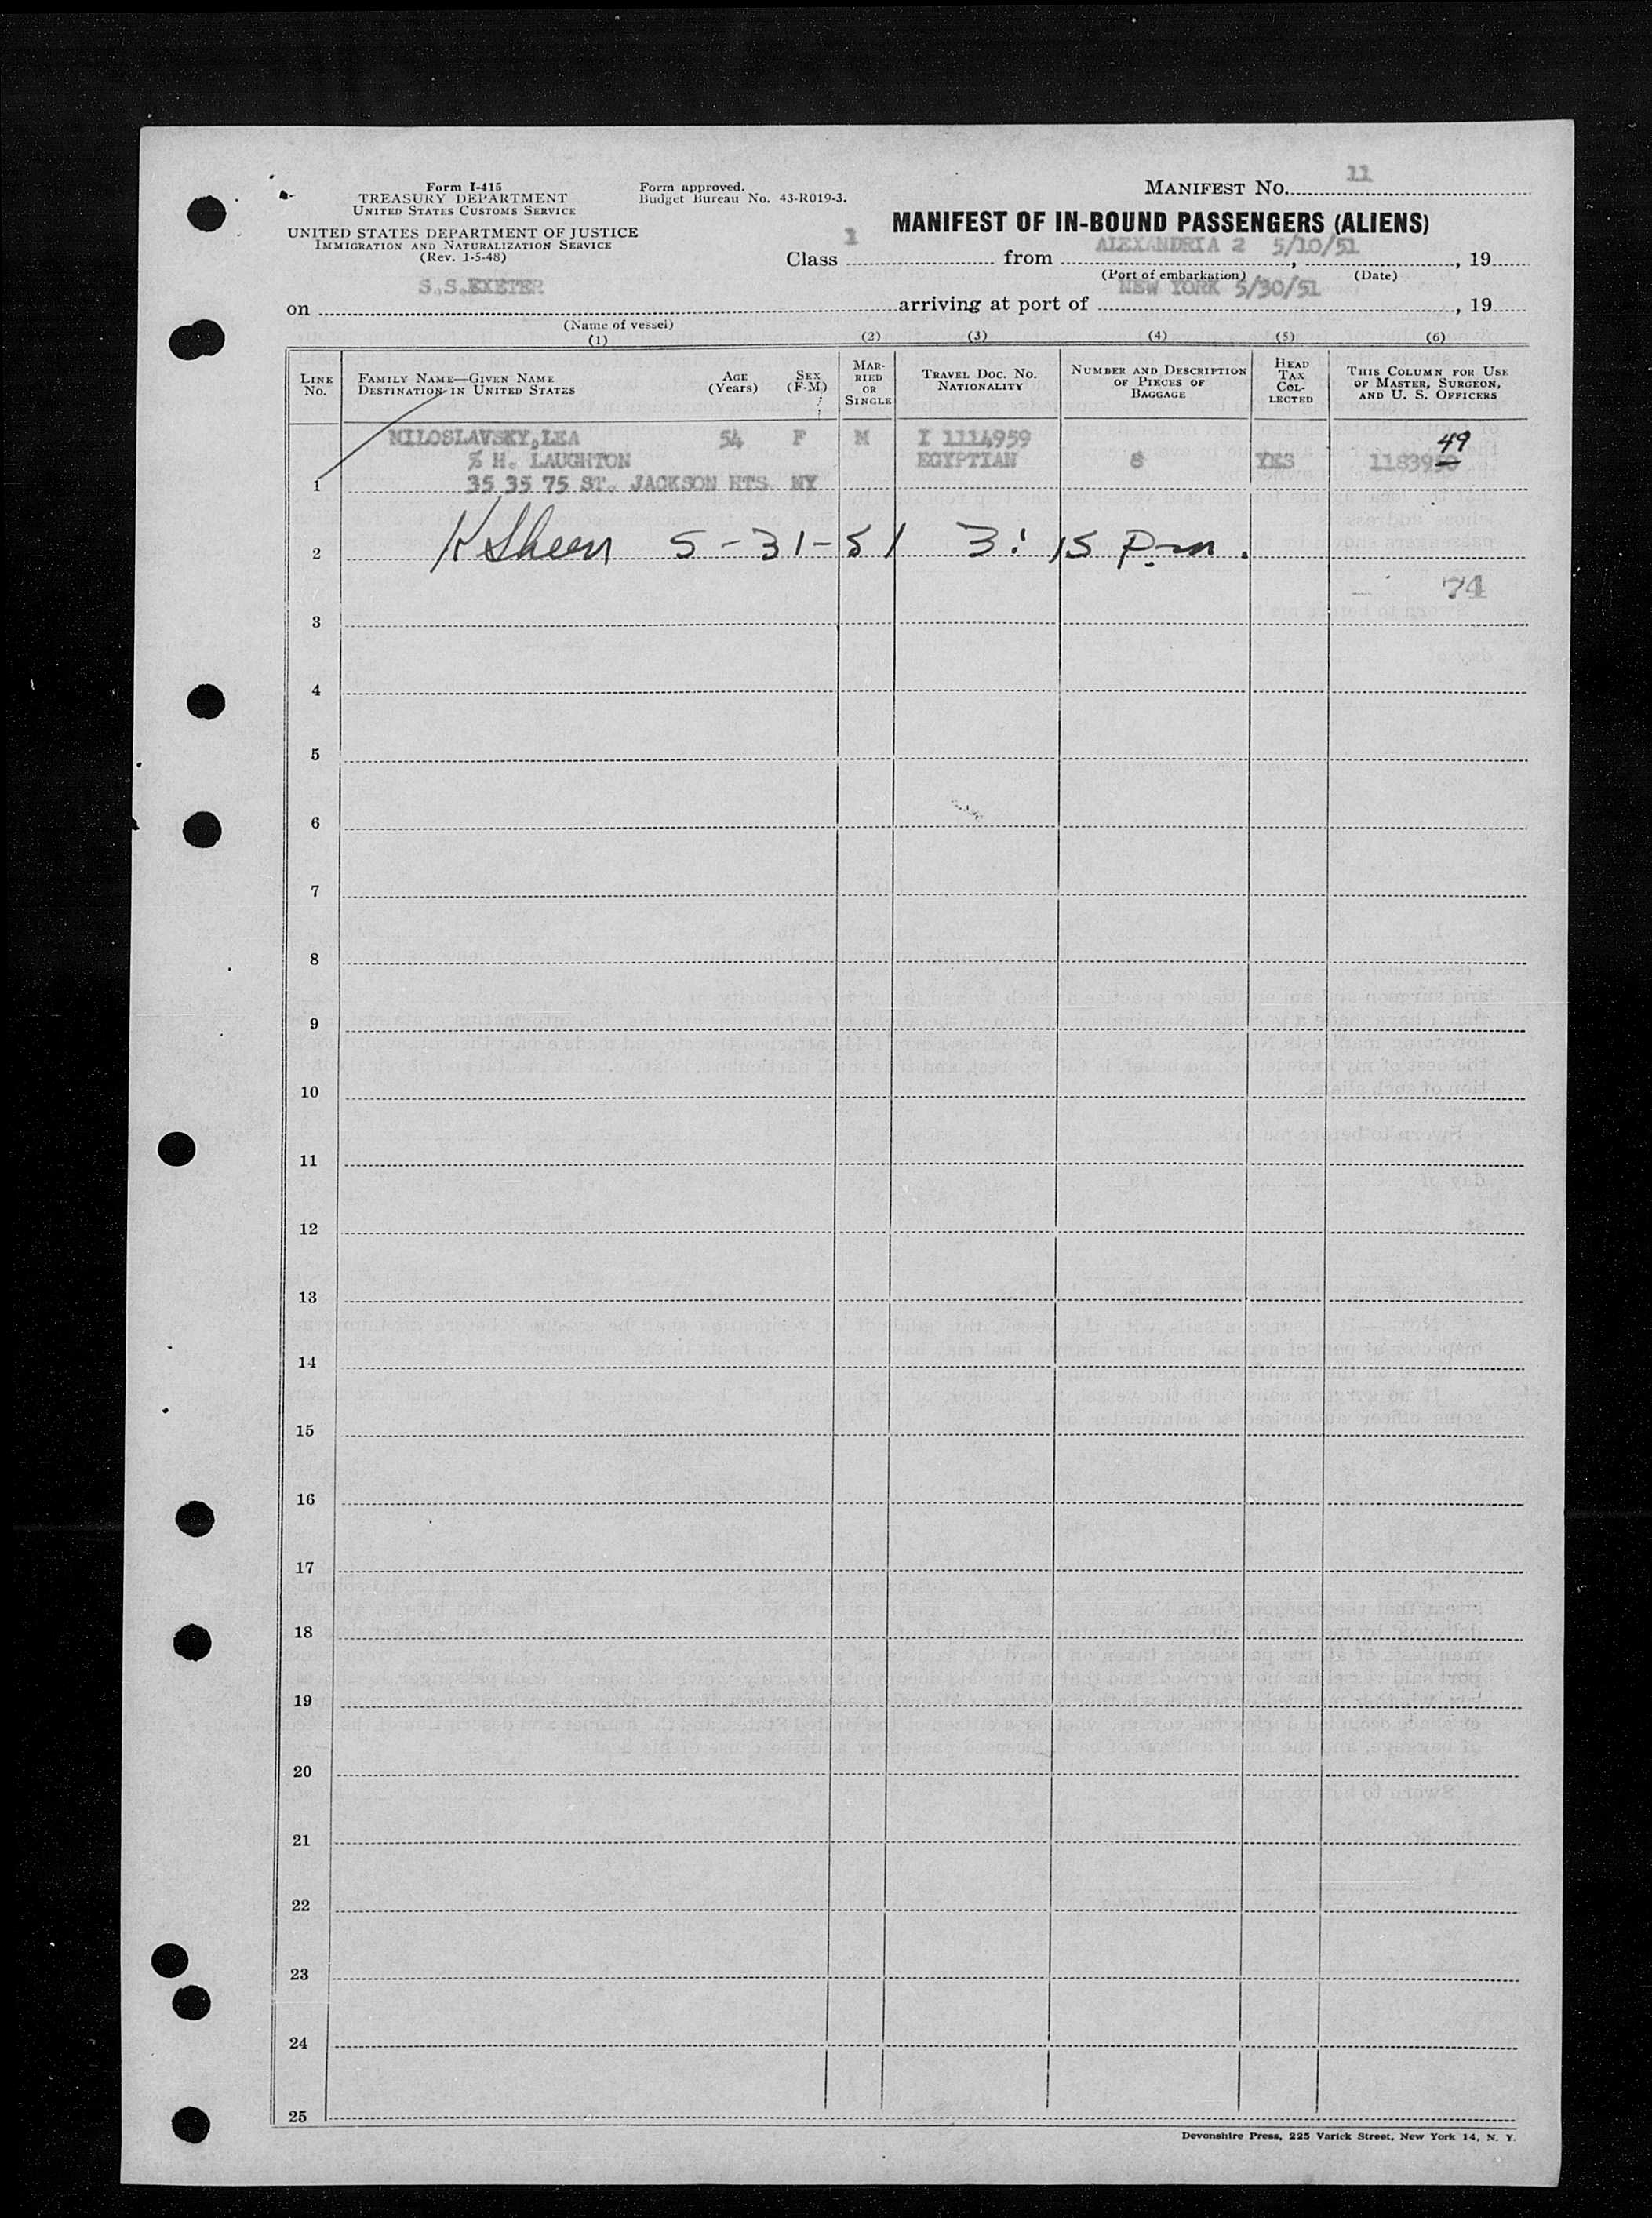 Form I-415
TREASURY DEPARTMENT
UNITED STATES CUSTOMS SERVICE
UNITED STATES DEPARTMENT OF JUSTICE
IMMIGRATION AND NATURALIZATION SERVICE
(Rev. 1-5-48)
Form approved.
Budget Bureau No. 43-R019-3.
MANIFEST NO. 11
MANIFEST OF IN-BOUND PASSENGERS (ALIENS)
Class 1 from ALEXANDRIA 2 5/10/51, 19
(Port of embarkation) (Date)
on S.S.EXETER arriving at port of NEW YORK 5/30/51, 19
(Name of vessel)
(1) (2) (3) (4) (5) (6)
LINE NO.
FAMILY NAME—GIVEN NAME
DESTINATION IN UNITED STATES
AGE (Years)
SEX (F-M)
MARRIED OR SINGLE
TRAVEL DOC. NO.
NATIONALITY
NUMBER AND DESCRIPTION OF PIECES OF BAGGAGE
HEAD TAX COLLECTED
THIS COLUMN FOR USE OF MASTER, SURGEON, AND U. S. OFFICERS
MILOSLAVSKY,LEA 54 F M I 1114959 49
% H. LAUGHTON EGYPTIAN 8 YES 1183950
1 35 35 75 ST. JACKSON HTS. NY
2 K Sheen 5-31-51 3:15 P.m.
74
3
4
5
6
7
8
9
10
11
12
13
14
15
16
17
18
19
20
21
22
23
24
25
Devonshire Press, 225 Varick Street, New York 14, N. Y.